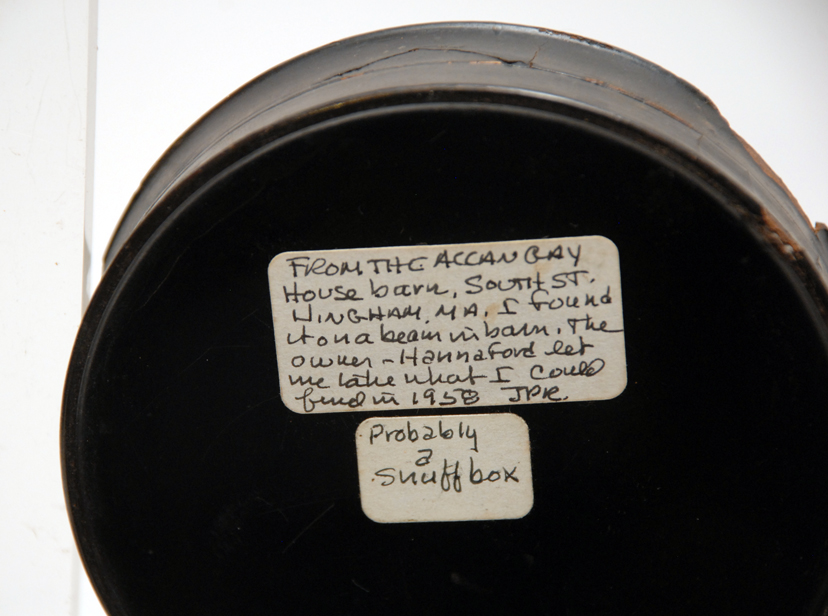 FROM THE ACCAN GAY
House barn, SOUTH ST.
HINGHAM, MA. I found
it on a beam in barn. The
owner - Hannaford let
me take what I could
find in 1958 JPR.
Probably
a
snuff box